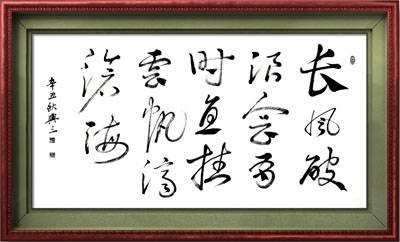 长风破
浪会有
时直挂
云帆济
沧海
辛丑秋兴三